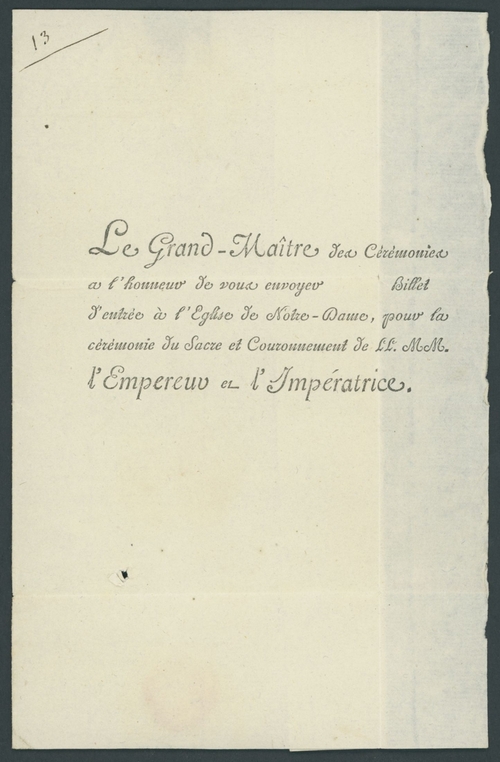 13
Le Grand-Maître des Cérémonies
a l'honneur de vous envoyer Billet
d'entrée à l'Eglise de Notre-Dame, pour la
cérémonie du Sacre et Couronnement de LL. MM.
l'Empereur et l'Impératrice.